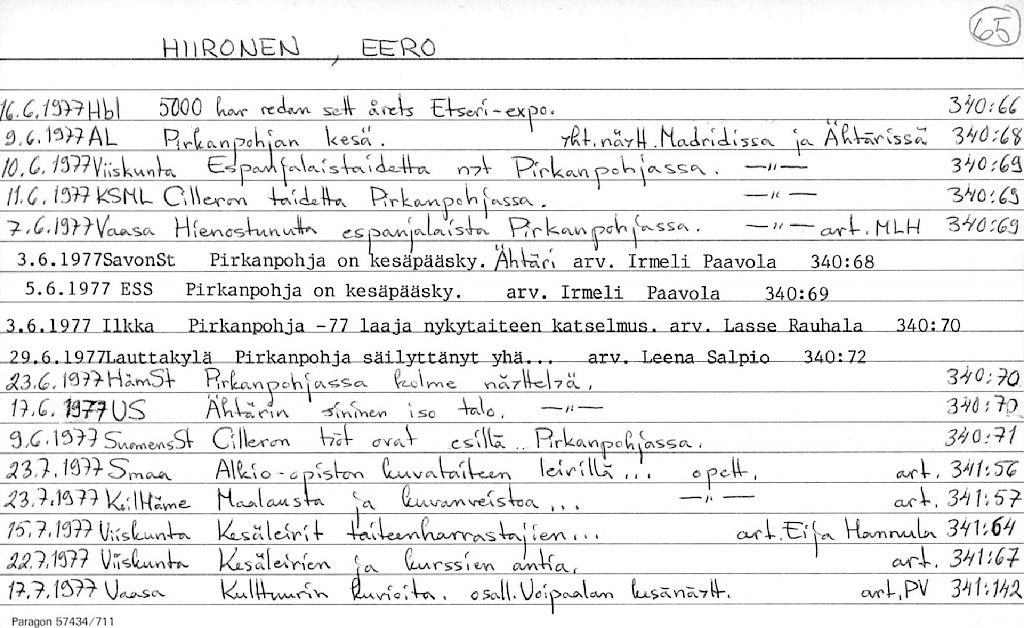 65
HIIRONEN, EERO
16.6.1977 Hbl 5000 har redan sett årets Etseri-expo. 340:66
9.6.1977 AL Pirkanpohjan kesä. yht.näytt. Madridissa ja Ähtärissä 340:68
10.6.1977 Viiskunta Espanjalaistaidetta nyt Pirkanpohjassa. —"— 340:69
11.6.1977 KSML Cilleron taidetta Pirkanpohjassa. —"— 340:69
7.6.1977 Vaasa Hienostunutta espanjalaista Pirkanpohjassa. —"— art. MLH 340:69
3.6.1977SavonSt Pirkanpohja on kesäpääsky. Ähtäri arv. Irmeli Paavola 340:68
5.6.1977 ESS Pirkanpohja on kesäpääsky. arv. Irmeli Paavola 340:69
3.6.1977 Ilkka Pirkanpohja -77 laaja nykytaiteen katselmus. arv. Lasse Rauhala 340:70
29.6.1977Lauttakylä Pirkanpohja säilyttänyt yhä... arv. Leena Salpio 340:72
23.6.1977 HämSt Pirkanpohjassa kolme näyttelyä. 340:70
17.6.1977 US Ähtärin sininen iso talo. —"— 340:70
9.6.1977 SuomensSt Cilleron työt ovat esillä.. Pirkanpohjassa. 340:71
23.7.1977 Smaa Alkio-opiston kuvataiteen leirillä... opett. art. 341:56
23.7.1977 KeilHäme Maalausta ja kuvanveistoa... —"— art. 341:57
15.7.1977 Viiskunta Kesäleirit taiteenharrastajien... art. Eija Hannula 341:64
22.7.1977 Viiskunta Kesäleirien ja kurssien antia. art. 341:67
17.7.1977 Vaasa Kulttuurin kurioita. osall. Voipaalan kesänäytt. art. PV 341:142
Paragon 57434/711